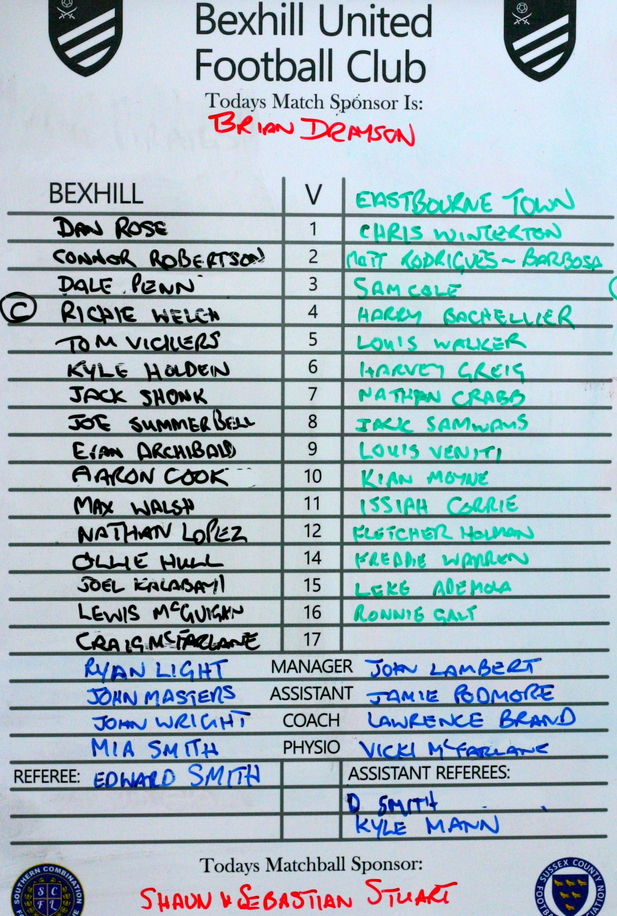 Bexhill United
Football Club
Todays Match Sponsor Is:
BRIAN DRAYSON
BEXHILL V EASTBOURNE TOWN
DAN ROSE 1 CHRIS WINTERTON
CONNOR ROBERTSON 2 MATT RODRIGUES-BARBOSA
DALE PENN 3 SAM COLE
C RICHIE WELCH 4 HARRY BACHELLIER
TOM VICKERS 5 LOUIS WALKER
KYLE HOLDEN 6 HARVEY GREIG
JACK SHONK 7 NATHAN CRABB
JOE SUMMERBELL 8 JACK SAMWAYS
EVAN ARCHIBALD 9 LOUIS VENITI
AARON COOK 10 KIAN MOYNE
MAX WALSH 11 ISSIAH CORRIE
NATHAN LOPEZ 12 FLETCHER HOLMAN
OLLIE HULL 14 FREDDIE WARREN
JOEL KALABAYI 15 LEKE ADEMOLA
LEWIS McGUIGAN 16 RONNIE GALT
CRAIG McFARLANE 17
RYAN LIGHT MANAGER JOHN LAMBERT
JOHN MASTERS ASSISTANT JAMIE PODMORE
JOHN WRIGHT COACH LAWRENCE BRAND
MIA SMITH PHYSIO VICKI McFARLANE
REFEREE: EDWARD SMITH ASSISTANT REFEREES:
D SMITH
KYLE MANN
Todays Matchball Sponsor:
SHAUN & SEBASTIAN STUART
SOUTHERN COMBINATION
SCFL
SUSSEX COUNTY